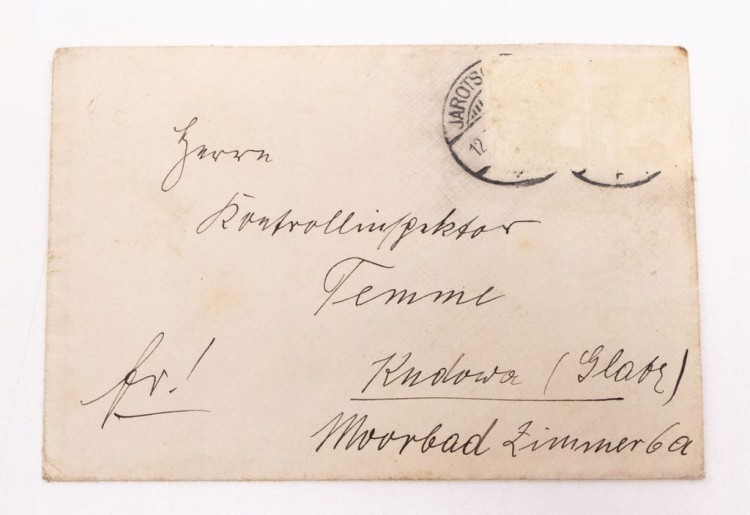 JAROTS
12.
Herrn
Kontrollinspektor
Temme
fr!
Kudowa (Glatz)
Moorbad Zimmer 6a